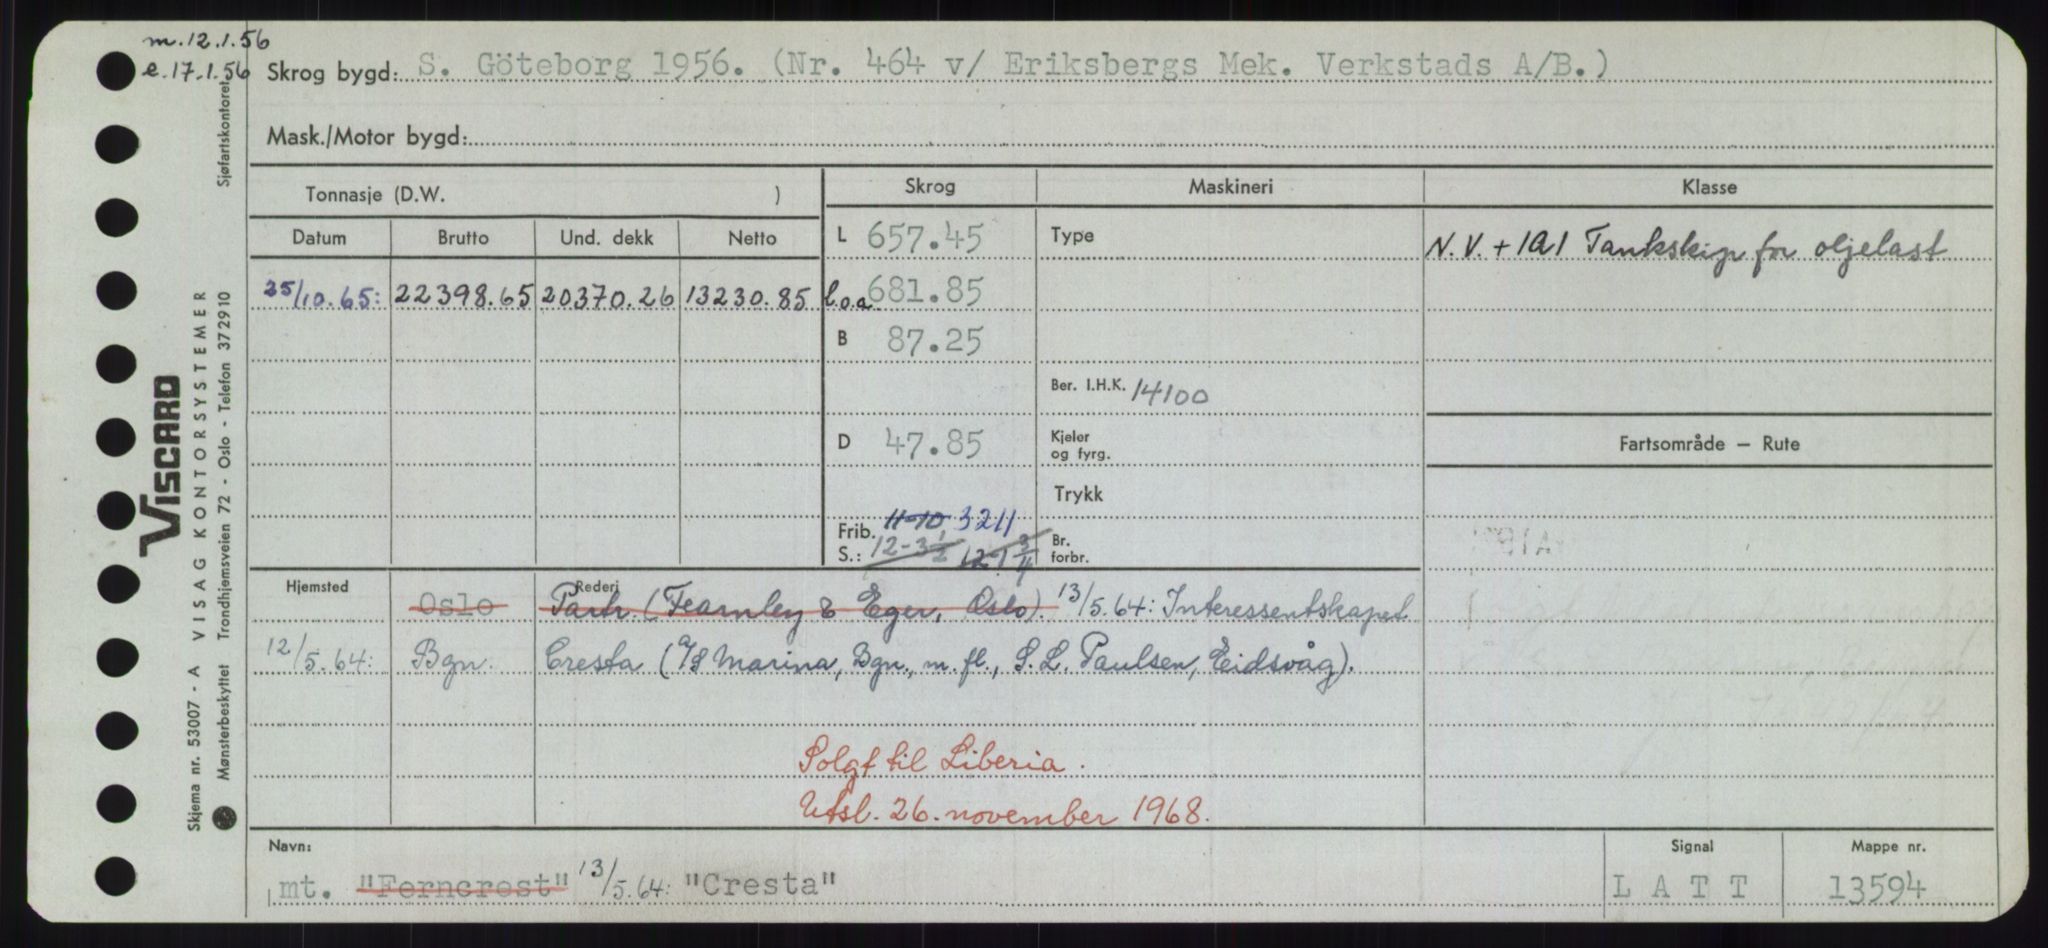 m.12.1.56
e.17.1.56 Skrog bygd: S. Göteborg 1956. (Nr. 464 v/ Eriksbergs Mek. Verkstads A/B.)
Mask./Motor bygd:
Tonnasje (D.W. ) Skrog Maskineri Klasse
Datum Brutto Und. dekk Netto L 657.45 Type N.V. + 1A1 Tankskip for oljelast
25/10.65: 22398.65 20370.26 13230.85 l.o.a. 681.85
B 87.25
Ber. I.H.K. 14100
D 47.85 Kjeler og fyrg. Fartsområde — Rute
Trykk
Frib. 11-10 3211
S.: 12-3 1/2 12-1 3/4 Br. forbr.
Hjemsted Rederi
Oslo Partr. (Fearnley & Eger, Oslo). 13/5.64: Interessentskapet
12/5.64: Bgn. Cresta (A/S Marina, Bgn., m. fl., S. L. Paulsen, Eidsvåg).
Solgt til Liberia.
Utsl. 26. november 1968.
Navn: Signal Mappe nr.
mt. "Ferncrest" 13/5.64: "Cresta" L A T T 13594
Sjøfartskontoret
VISCARD
Skjema nr. 53007 - A VISAG KONTORSYSTEMER
Mønsterbeskyttet Trondhjemsveien 72 - Oslo - Telefon 372910